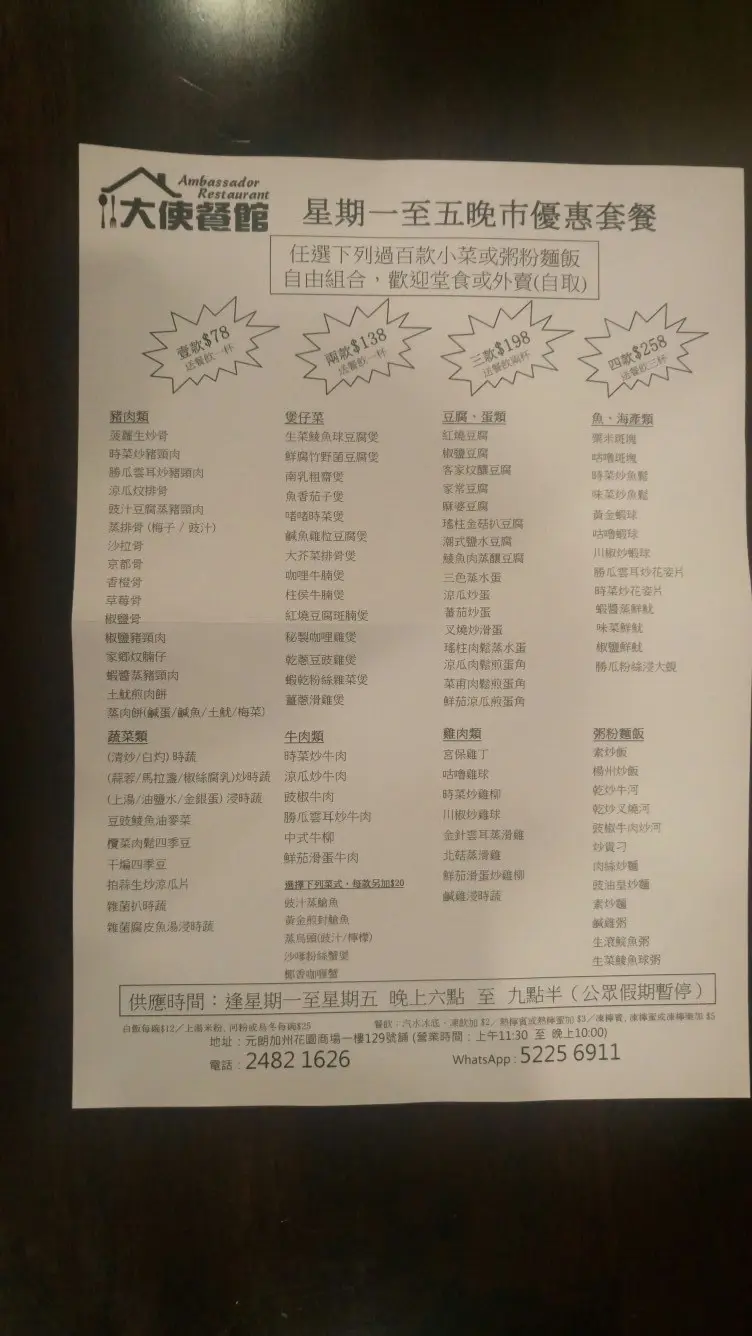 Ambassador
Restaurant
大使餐館
星期一至五晚市優惠套餐
任選下列過百款小菜或粥粉麵飯
自由組合，歡迎堂食或外賣(自取)
壹款$78
送餐飲一杯
兩款$138
送餐飲一杯
三款$198
送餐飲兩杯
四款$258
送餐飲三杯
豬肉類
菠蘿生炒骨
時菜炒豬頸肉
勝瓜雲耳炒豬頸肉
涼瓜炆排骨
豉汁豆腐蒸豬頸肉
蒸排骨 (梅子 / 豉汁)
沙拉骨
京都骨
香橙骨
草莓骨
椒鹽骨
椒鹽豬頸肉
家鄉炆腩仔
蝦醬蒸豬頸肉
土魷煎肉餅
蒸肉餅(鹹蛋/鹹魚/土魷/梅菜)
煲仔菜
生菜鯪魚球豆腐煲
鮮腐竹野菌豆腐煲
南乳粗齋煲
魚香茄子煲
啫啫時菜煲
鹹魚雞粒豆腐煲
大芥菜排骨煲
咖哩牛腩煲
柱侯牛腩煲
紅燒豆腐斑腩煲
秘製咖哩雞煲
乾蔥豆豉雞煲
蝦乾粉絲雜菜煲
薑蔥滑雞煲
豆腐、蛋類
紅燒豆腐
椒鹽豆腐
客家炆釀豆腐
家常豆腐
麻婆豆腐
瑤柱金菇扒豆腐
潮式鹽水豆腐
鯪魚肉蒸釀豆腐
三色蒸水蛋
涼瓜炒蛋
蕃茄炒蛋
叉燒炒滑蛋
瑤柱肉鬆蒸水蛋
涼瓜肉鬆煎蛋角
菜甫肉鬆煎蛋角
鮮茄涼瓜煎蛋角
魚、海產類
粟米斑塊
咕嚕斑塊
時菜炒魚鬆
味菜炒魚鬆
黃金蝦球
咕嚕蝦球
川椒炒蝦球
勝瓜雲耳炒花姿片
時菜炒花姿片
蝦醬蒸鮮魷
味菜鮮魷
椒鹽鮮魷
勝瓜粉絲浸大蜆
蔬菜類
(清炒/白灼) 時蔬
(蒜蓉/馬拉盞/椒絲腐乳)炒時蔬
(上湯/油鹽水/金銀蛋) 浸時蔬
豆豉鯪魚油麥菜
欖菜肉鬆四季豆
干煸四季豆
拍蒜生炒涼瓜片
雜菌扒時蔬
雜菌腐皮魚湯浸時蔬
牛肉類
時菜炒牛肉
涼瓜炒牛肉
豉椒牛肉
勝瓜雲耳炒牛肉
中式牛柳
鮮茄滑蛋牛肉
選擇下列菜式，每款另加$20
豉汁蒸鱠魚
黃金煎封鱠魚
蒸烏頭(豉汁/檸檬)
沙嗲粉絲蟹煲
椰香咖喱蟹
雞肉類
宮保雞丁
咕嚕雞球
時菜炒雞柳
川椒炒雞球
金針雲耳蒸滑雞
北菇蒸滑雞
鮮茄滑蛋炒雞柳
鹹雞浸時蔬
粥粉麵飯
素炒飯
楊州炒飯
乾炒牛河
乾炒叉燒河
豉椒牛肉炒河
炒貴刁
肉絲炒麵
豉油皇炒麵
素炒麵
鹹雞粥
生滾鯇魚粥
生菜鯪魚球粥
供應時間：逢星期一至星期五 晚上六點 至 九點半（公眾假期暫停）
白飯每碗$12／上湯米粉, 河粉或烏冬每碗$25
餐飲：汽水冰底、凍飲加 $2／熱檸賓或熱檸蜜加 $3／凍檸賓, 凍檸蜜或凍檸樂加 $5
地址：元朗加州花園商場一樓129號舖 (營業時間：上午11:30 至 晚上10:00)
電話：2482 1626
WhatsApp : 5225 6911